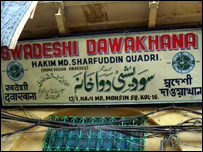 SWADESHI DAWAKHANA
HAKIM MD. SHARFUDDIN QUADRI.
स्वदेशी
दवाखाना
سودیشی دواخانہ
স্বদেশী
দাওয়াখানা
13/1, HAJI MD. MOHSIN SQ. KOL-16.